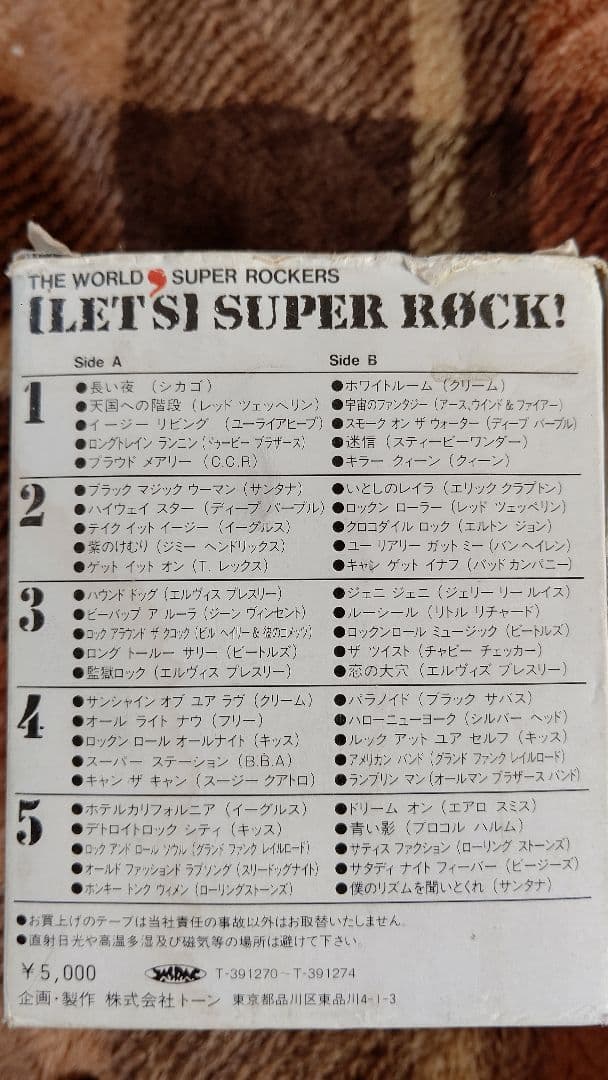 THE WORLD, SUPER ROCKERS
[LET'S] SUPER RØCK!
Side A Side B
1
●長い夜 (シカゴ) ●ホワイトルーム (クリーム)
●天国への階段 (レッド ツェッペリン) ●宇宙のファンタジー (アース、ウインド&ファイアー)
●イージー リビング (ユーライアヒープ) ●スモーク オン ザ ウォーター (ディープ パープル)
●ロングトレイン ランニン (ドゥービー ブラザース) ●迷信 (スティービーワンダー)
●プラウド メアリー (C.C.R) ●キラー クィーン (クィーン)
2
●ブラック マジック ウーマン (サンタナ) ●いとしのレイラ (エリック クラプトン)
●ハイウェイ スター (ディープ パープル) ●ロックン ローラー (レッド ツェッペリン)
●テイク イット イージー (イーグルス) ●クロコダイル ロック (エルトン ジョン)
●紫のけむり (ジミー ヘンドリックス) ●ユー リアリー ガット ミー (バン ヘイレン)
●ゲット イット オン (T. レックス) ●キャン ゲット イナフ (バッド カンパニー)
3
●ハウンド ドッグ (エルヴィス プレスリー) ●ジェニ ジェニ (ジェリー リー ルイス)
●ビーバップ ア ルーラ (ジーン ヴィンセント) ●ルーシール (リトル リチャード)
●ロック アラウンド ザ クロック (ビル ヘイリー&彼のコメッツ) ●ロックンロール ミュージック (ビートルズ)
●ロング トールー サリー (ビートルズ) ●ザ ツイスト (チャビー チェッカー)
●監獄ロック (エルヴィス プレスリー) ●恋の大穴 (エルヴィズ プレスリー)
4
●サンシャイン オブ ユア ラヴ (クリーム) ●パラノイド (ブラック サバス)
●オール ライト ナウ (フリー) ●ハローニューヨーク (シルバー ヘッド)
●ロックン ロール オールナイト (キッス) ●ルック アット ユア セルフ (キッス)
●スーパー ステーション (B.B.A) ●アメリカン バンド (グランド ファンク レイルロード)
●キャン ザ キャン (スージー クアトロ) ●ランブリン マン (オールマン ブラザース バンド)
5
●ホテルカリフォルニア (イーグルス) ●ドリーム オン (エアロ スミス)
●デトロイトロック シティ (キッス) ●青い影 (プロコル ハルム)
●ロック アンド ロール ソウル (グランド ファンク レイルロード) ●サティス ファクション (ローリング ストーンズ)
●オールド ファッションド ラブソング (スリードッグナイト) ●サタディ ナイト フィーバー (ビージーズ)
●ホンキー トンク ウィメン (ローリングストーンズ) ●僕のリズムを聞いとくれ (サンタナ)
●お買上げのテープは当社責任の事故以外はお取替いたしません。
●直射日光や高温多湿及び磁気等の場所は避けて下さい。
¥5,000 T-391270~T-391274
企画・製作 株式会社トーン 東京都品川区東品川4-1-3